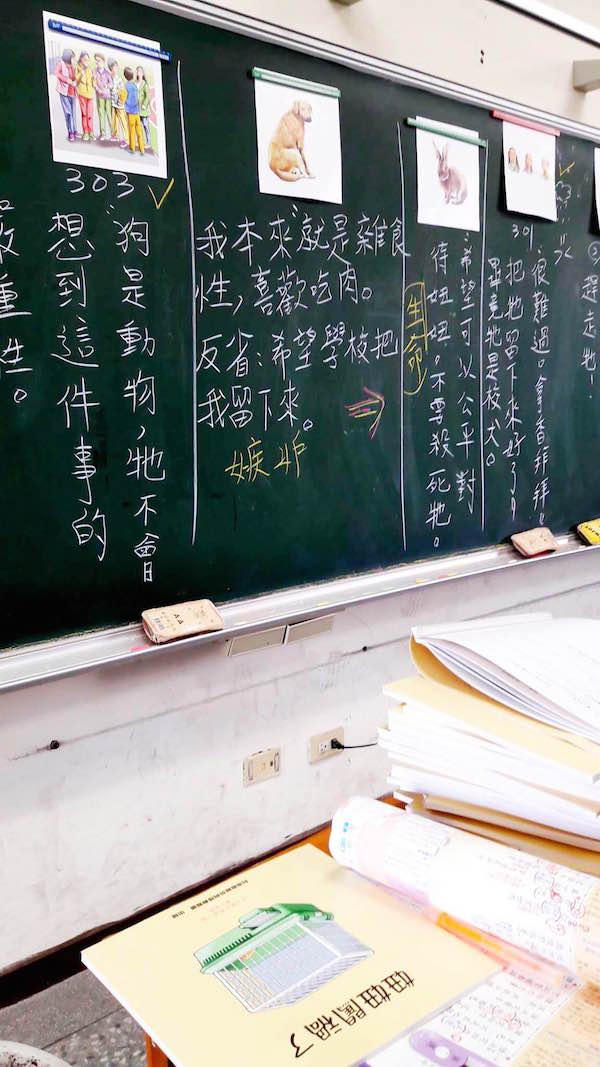 303
"狗是動物,牠不會
想到這件事的
嚴重性。
我本來"就是雜食
性,喜歡吃肉。
反省:希望學校把
我留下來。
嫉妒
希望可以公平對
待妞妞。不要殺死牠。
生命
301
很難過。拿香拜拜。
把牠留下來好了。
畢竟牠是校犬。
③趕走牠!
妞妞闖禍了